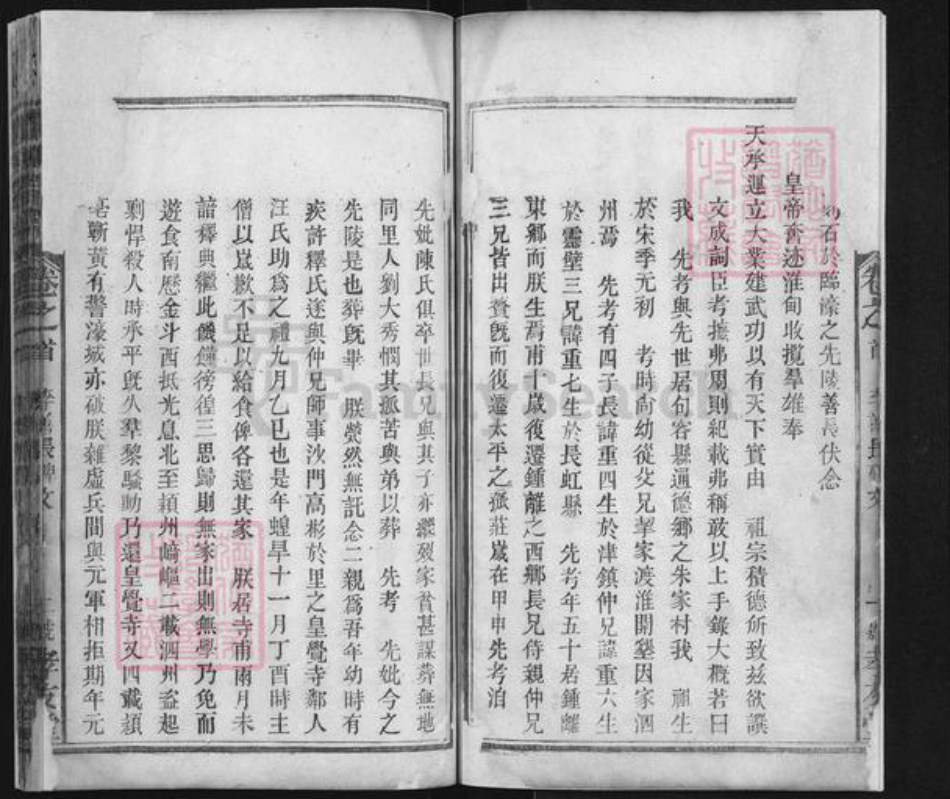 石於臨濠之先陵善長伏念
皇帝奮迹淮甸收攬羣雄奉
天承運立大業建武功以有天下實由 祖宗積德所致茲欲譔
文成詞臣考摭弗周則紀載弗稱敢以上手錄大概若曰
我 先考與先世居句容縣通德鄉之朱家村我 祖生
於宋季元初 考時尚幼從父兄挈家渡淮開墾因家泗
州焉 先考有四子長諱重四生於津鎮仲兄諱重六生
於靈壁三兄諱重七生於長虹縣 先考年五十居鍾離
東鄉而朕生焉甫十歲復遷鍾離之西鄉長兄侍親仲兄
三兄皆出贅既而復遷太平之孤莊歲在甲申先考泊
先妣陳氏俱卒世長兄與其子亦繼歿家貧甚謀葬無地
同里人劉大秀憫其孤苦與弟以葬 先考 先妣今之
先陵是也葬旣畢 朕煢然無託念二親爲吾年幼時有
疾許釋氏遂與仲兄師事沙門高彬於里之皇覺寺鄰人
汪氏助爲之禮九月乙巳也是年蝗旱十一月丁酉時主
僧以歲歉不足以給食俾各還其家 朕居寺甫兩月未
諳釋典繼此饑饉徬徨三思歸則無家出則無學乃免而
遊食南歷金斗西抵光息北至潁州崎嶇二載泗州盜起
剽悍殺人時承平旣久羣黎騷動乃還皇覺寺又四載潁
亳蘄黃有警濠城亦破朕雜處兵間與元軍相拒期年元
卷之首
李善長碑文
卷之首
李善長碑文
孝友堂
FamilySearch